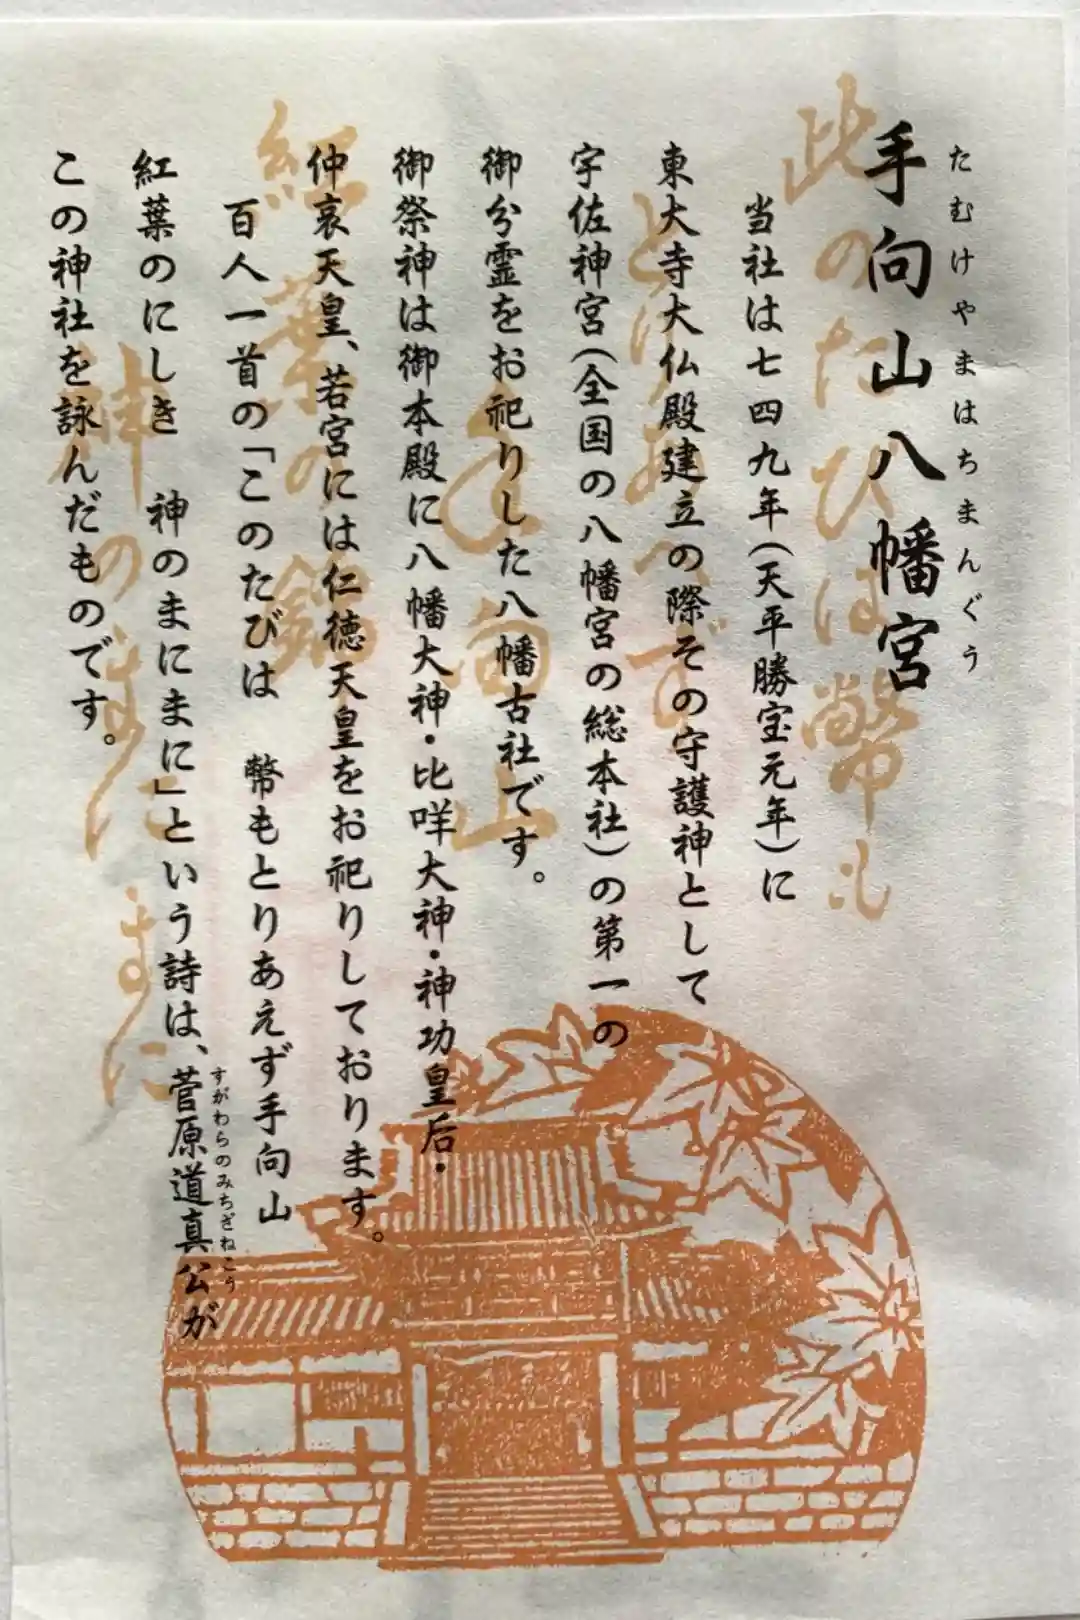 手向山八幡宮
たむけやまはちまんぐう
当社は七四九年(天平勝宝元年)に
東大寺大仏殿建立の際その守護神として
宇佐神宮(全国の八幡宮の総本社)の第一の
御分霊をお祀りした八幡古社です。
御祭神は御本殿に八幡大神・比咩大神・神功皇后・
仲哀天皇、若宮には仁徳天皇をお祀りしております。
百人一首の「このたびは 幣もとりあえず手向山
紅葉のにしき 神のまにまに」という詩は、菅原道真公が
すがわらのみちざねこう
この神社を詠んだものです。
此のたびは幣も
とりあへず
手向山
紅葉の錦
神のまに
まに